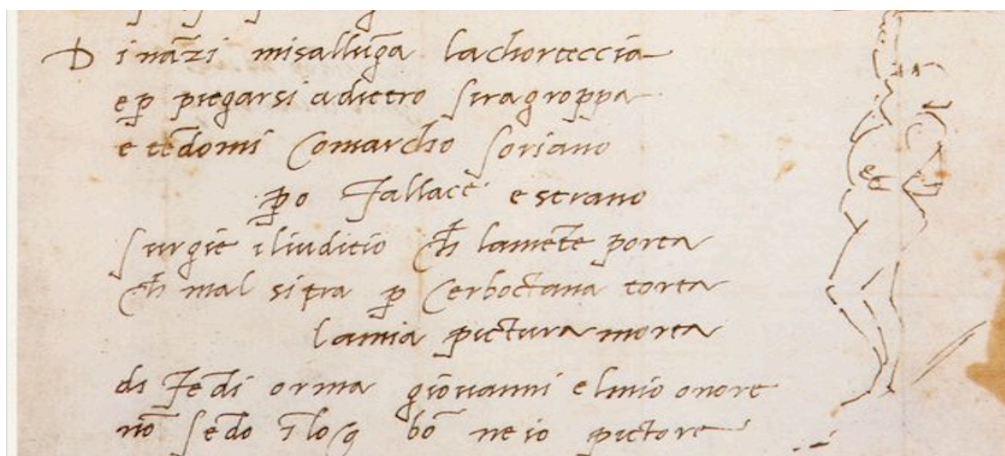 Dināzi misallūga lachorteccia
e p̱ piegarsi adietro siragroppa
e tēdomi Comarcho soriano
p̱o fallace e strano
surgie iliuditio ch̄ lamēte porta
ch̄ mal sitra p̱ Cerboctana torta
lamia pictura morta
di fēdi orma giovanni elmio onore
nō sēdo ī loco bō ne io pictore